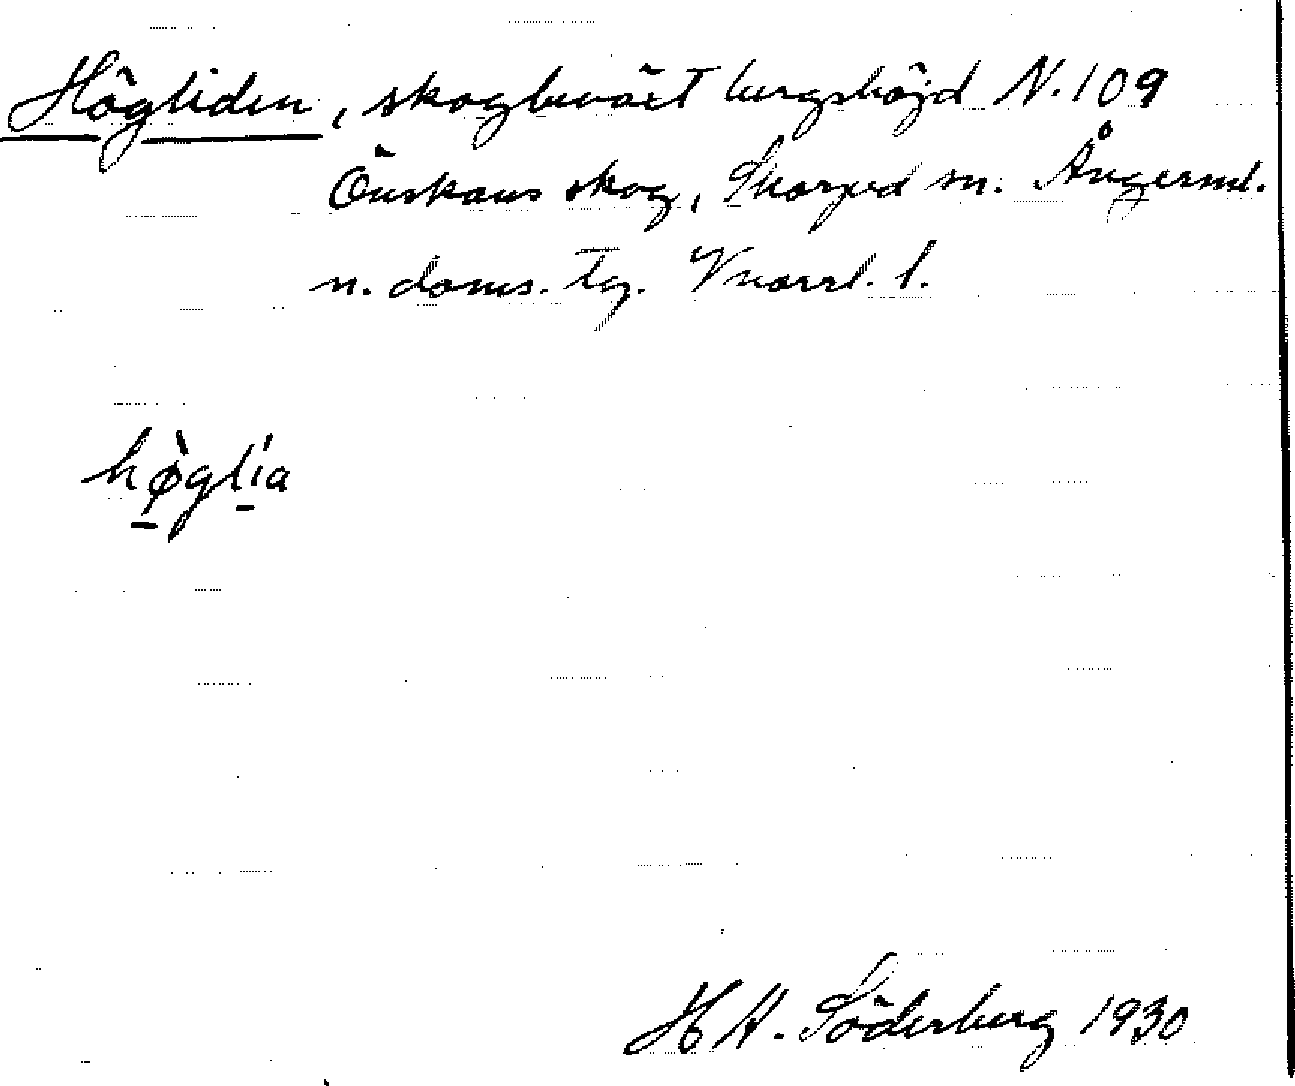 Högliden, skogbeväxt bergshöjd N. 109
Önskans skog, Skorped sn. Ångerml.
n. doms. tg. Vnorrl. l.
hø̀glía
H H. Söderberg 1930